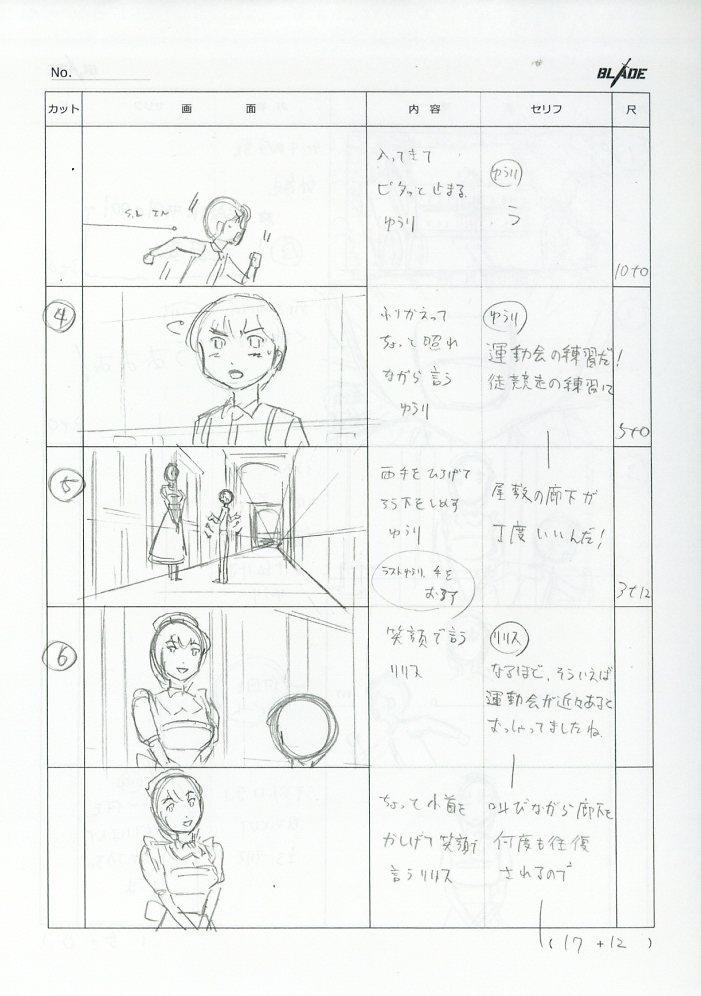 No.
BLADE
カット 画面 内容 セリフ 尺
S.L IN
入ってきて
ピタッと止まる
ゆうり
ゆうり
う
10+0
④
ふりかえって
ちょっと照れ
ながら言う
ゆうり
ゆうり
運動会の練習だ!
徒競走の練習に
5+0
⑤
両手をひろげて
ろう下をしめす
ゆうり
ラストゆうり、手を
おろす
屋敷の廊下が
丁度いいんだ!
3+12
⑥
笑顔で言う
リリス
リリス
なるほど、そういえば
運動会が近々あると
おっしゃってましたね
ちょっと小首を
かしげて笑顔で
言うリリス
叫びながら廊下を
何度も往復
されるので
(17+12)